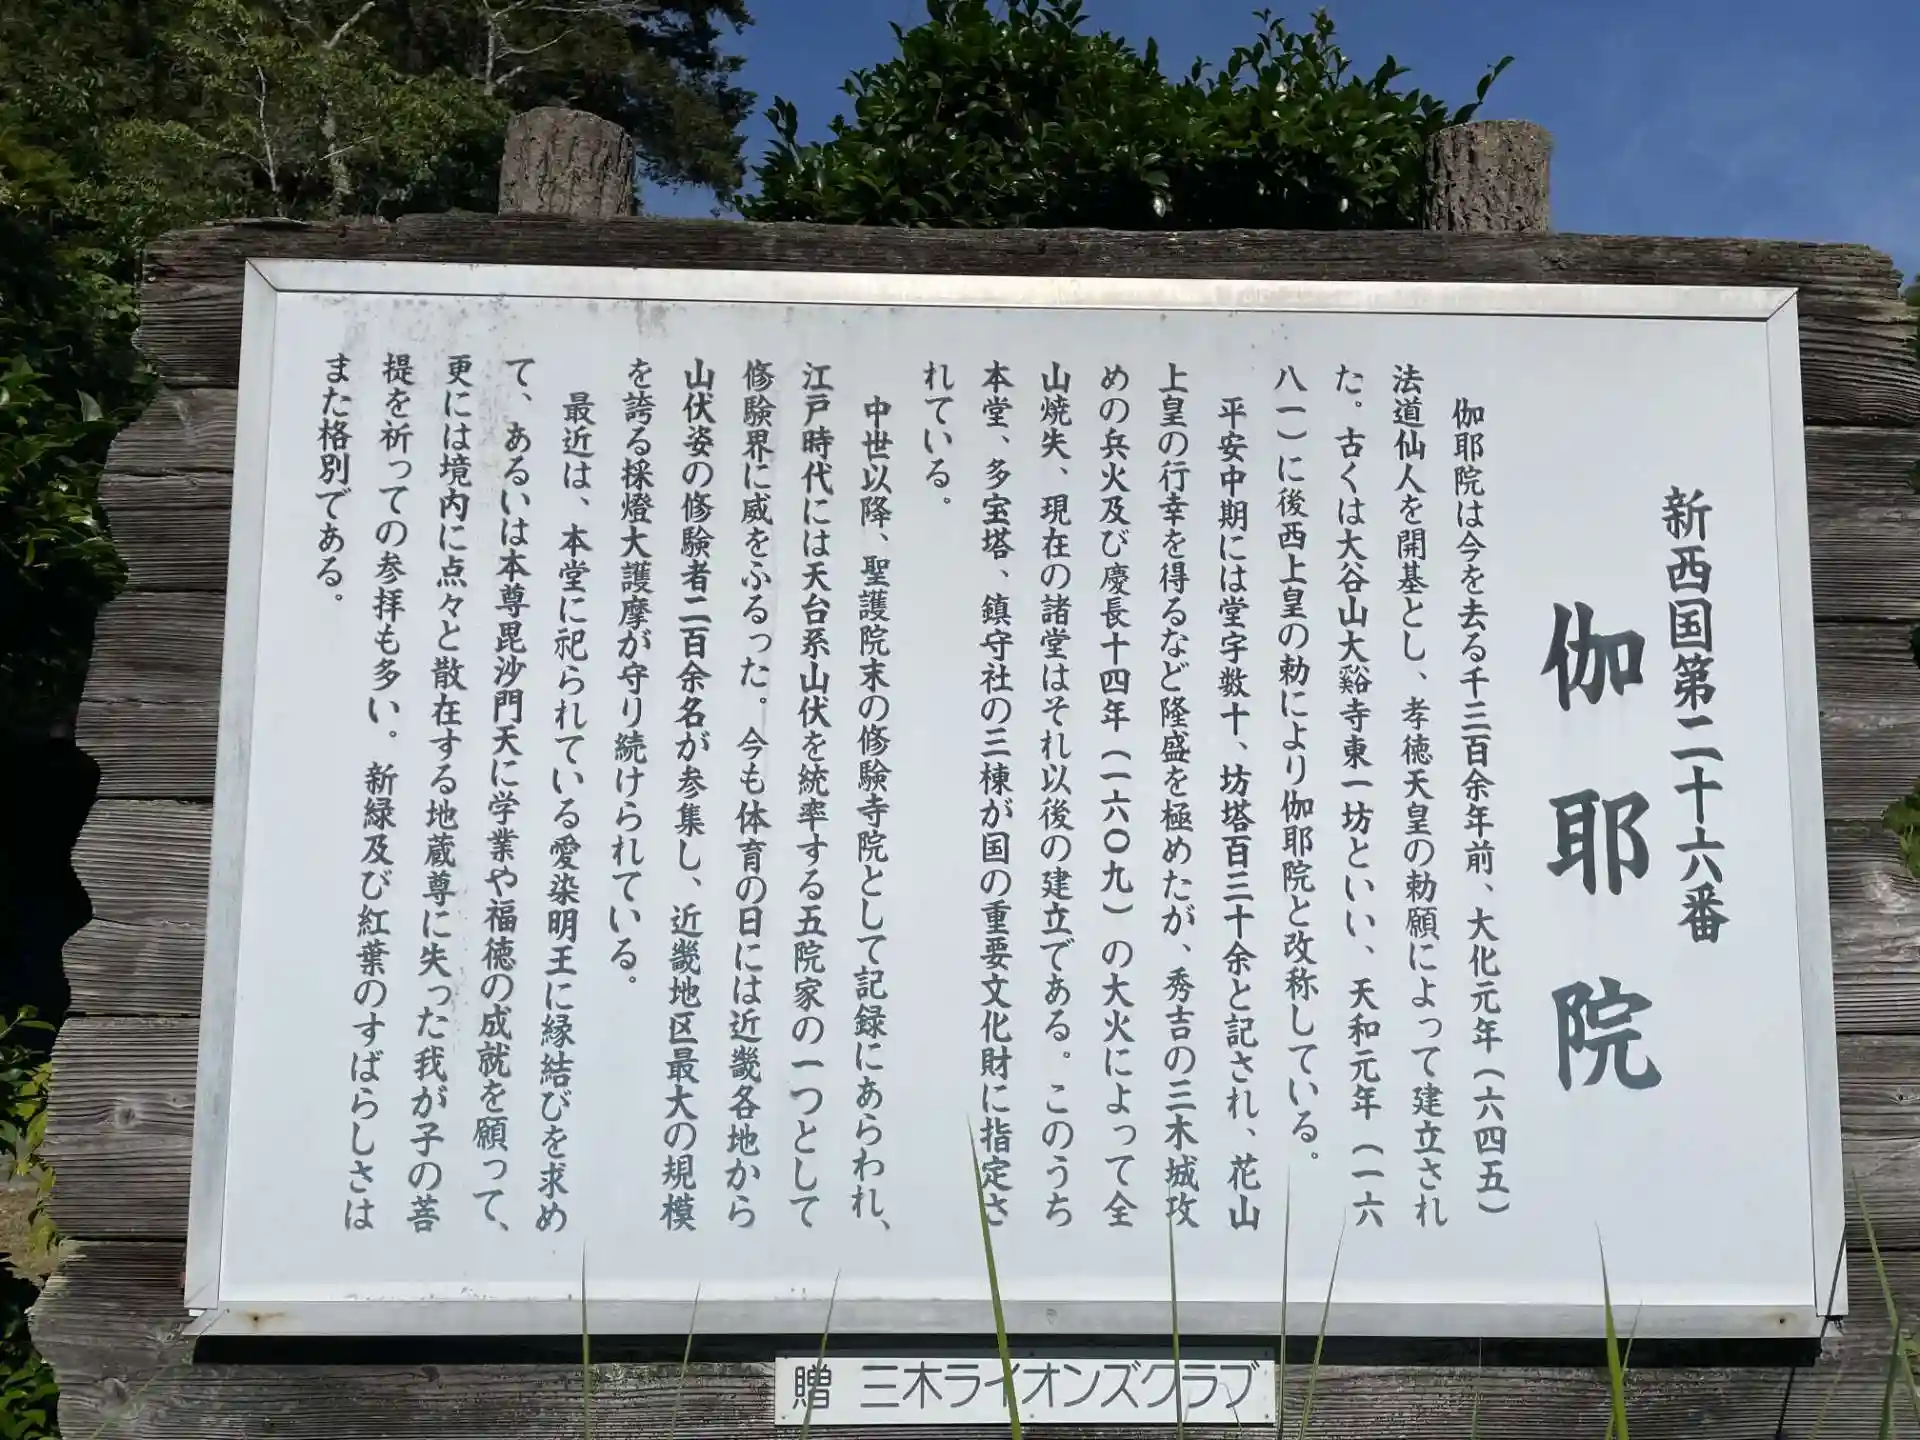 新西国第二十六番
伽耶院
伽耶院は今を去る千三百余年前、大化元年(六四五)
法道仙人を開基とし、孝徳天皇の勅願によって建立され
た。古くは大谷山大谿寺東一坊といい、天和元年(一六
八一)に後西上皇の勅により伽耶院と改称している。
平安中期には堂宇数十、坊塔百三十余と記され、花山
上皇の行幸を得るなど隆盛を極めたが、秀吉の三木城攻
めの兵火及び慶長十四年(一六〇九)の大火によって全
山焼失、現在の諸堂はそれ以後の建立である。このうち
本堂、多宝塔、鎮守社の三棟が国の重要文化財に指定さ
れている。
中世以降、聖護院末の修験寺院として記録にあらわれ、
江戸時代には天台系山伏を統率する五院家の一つとして
修験界に威をふるった。今も体育の日には近畿各地から
山伏姿の修験者二百余名が参集し、近畿地区最大の規模
を誇る採燈大護摩が守り続けられている。
最近は、本堂に祀られている愛染明王に縁結びを求め
て、あるいは本尊毘沙門天に学業や福徳の成就を願って、
更には境内に点々と散在する地蔵尊に失った我が子の菩
提を祈っての参拝も多い。新緑及び紅葉のすばらしさは
また格別である。
贈 三木ライオンズクラブ